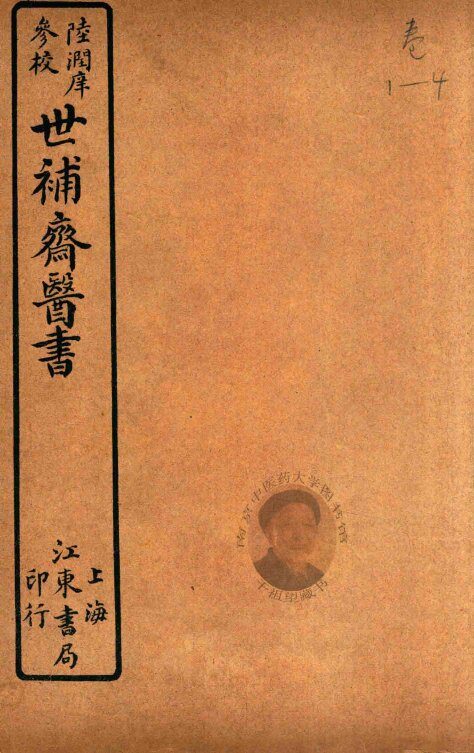 陸潤庠
參校
世補齋醫書
上海
江東書局
印行
卷
1—4
南京中医药大学图书馆
干祖望藏书